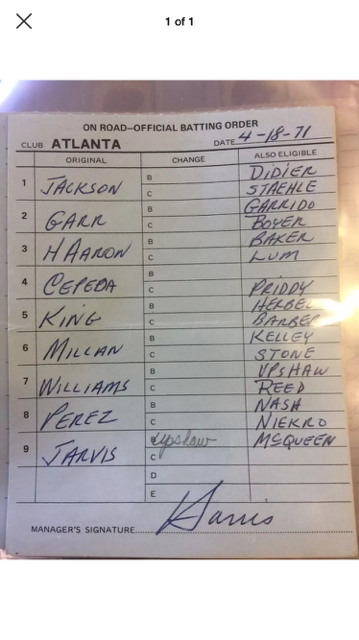 1 of 1
ON ROAD—OFFICIAL BATTING ORDER
CLUB ATLANTA DATE 4-18-71
ORIGINAL CHANGE ALSO ELIGIBLE
DIDIER
1 JACKSON B
C STAEHLE
B GARRIDO
2 GARR C BOYER
B BAKER
3 H AARON C LUM
B
4 CEPEDA C PRIDDY
B HERBEL
5 KING C BARBER
B KELLEY
6 MILLAN C STONE
B UPSHAW
7 WILLIAMS C REED
B NASH
8 PEREZ C NIEKRO
B Upshaw MCQUEEN
9 JARVIS C
D
E
MANAGER'S SIGNATURE Harris